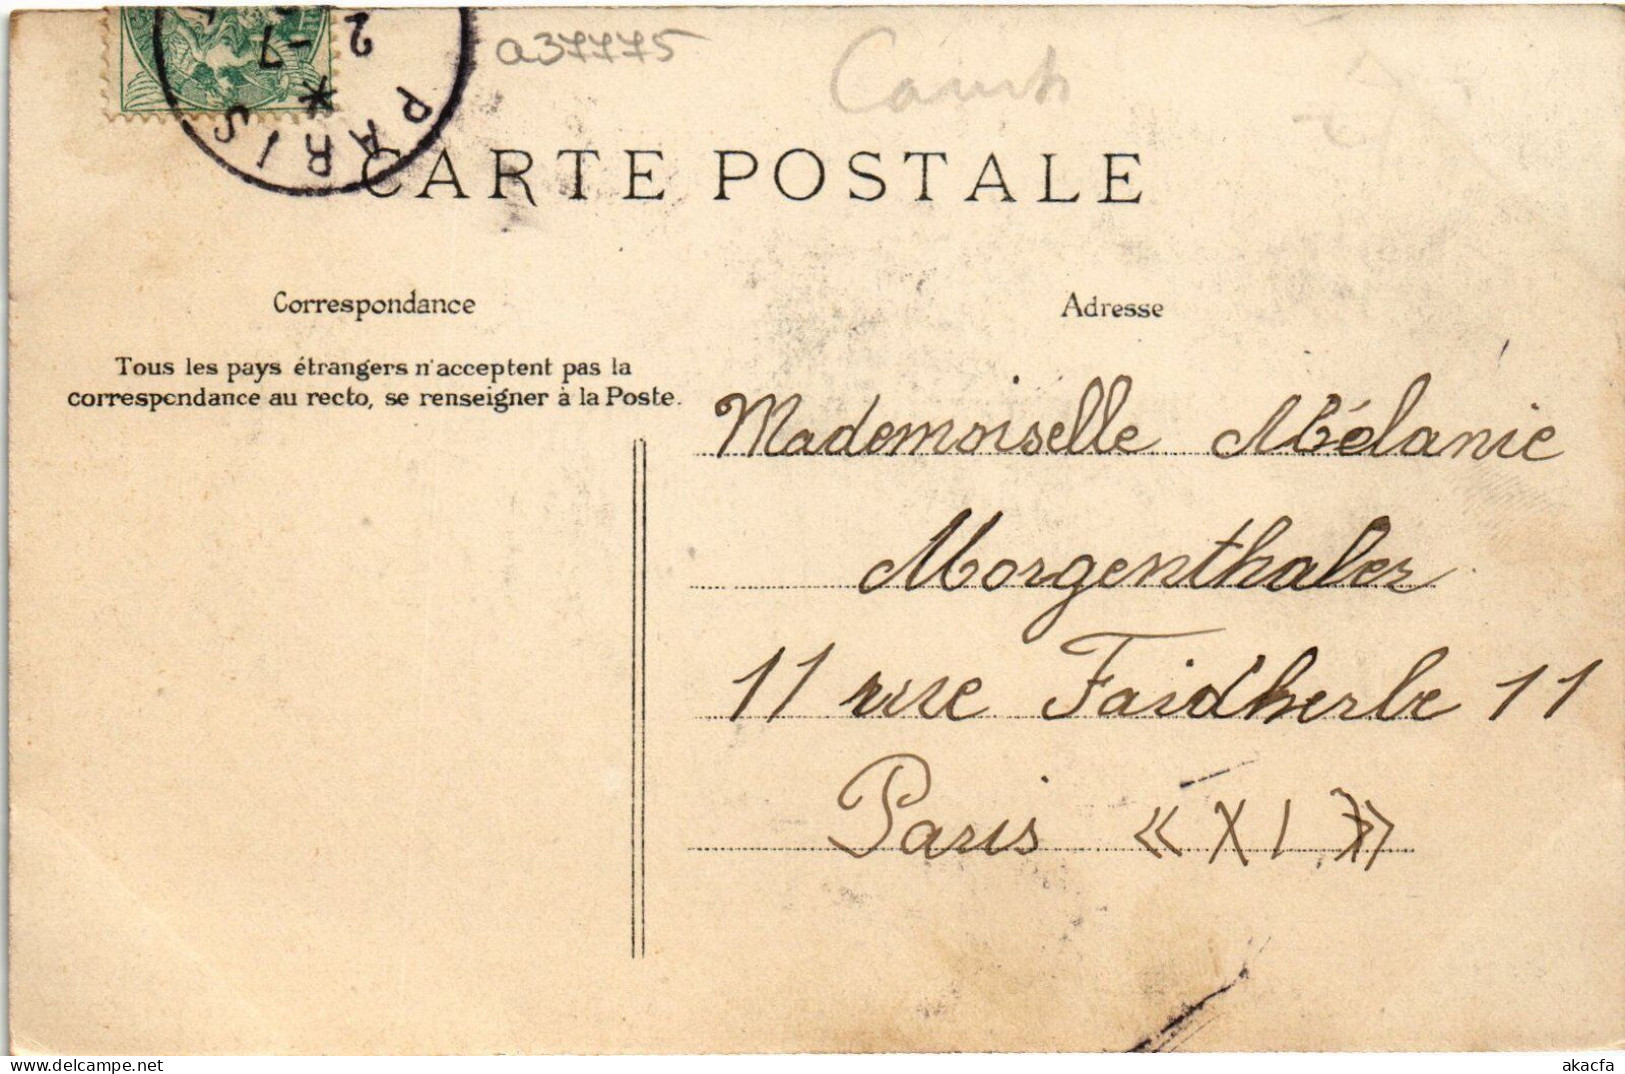 2
-7
* PARIS
a37775
CARTE POSTALE
Correspondance
Adresse
Tous les pays étrangers n'acceptent pas la
correspondance au recto, se renseigner à la Poste.
Mademoiselle Mélanie
Morgenthaler
11 rue Faidherbe 11
Paris « XI »
akacfa